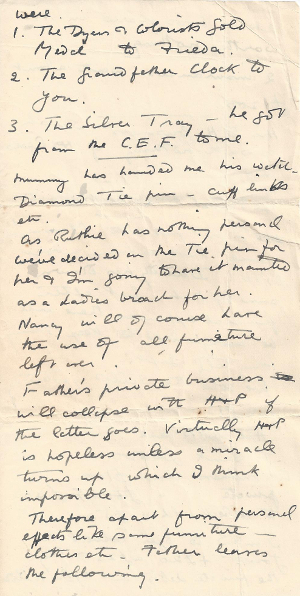 were
1. The Dyers & Colorists Gold
Medal to Frieda.
2. The Grandfather Clock to
you.
3. The Silver Tray – he got
from the C.E.F. to me.
Mummy has handed me his watch –
Diamond Tie pin – cuff links
etc.
As Ruthie has nothing personal
we've decided on the Tie pin for
her & I'm going to have it mounted
as a Ladies broach for her.
Nancy will of course have
the use of all furniture
left over.
Father's private business
will collapse with H&P if
the latter goes. Virtually H&P
is hopeless unless a miracle
turns up which I think
impossible.
Therefore apart from personal
effects like some furniture –
clothes etc – Father leaves
the following.